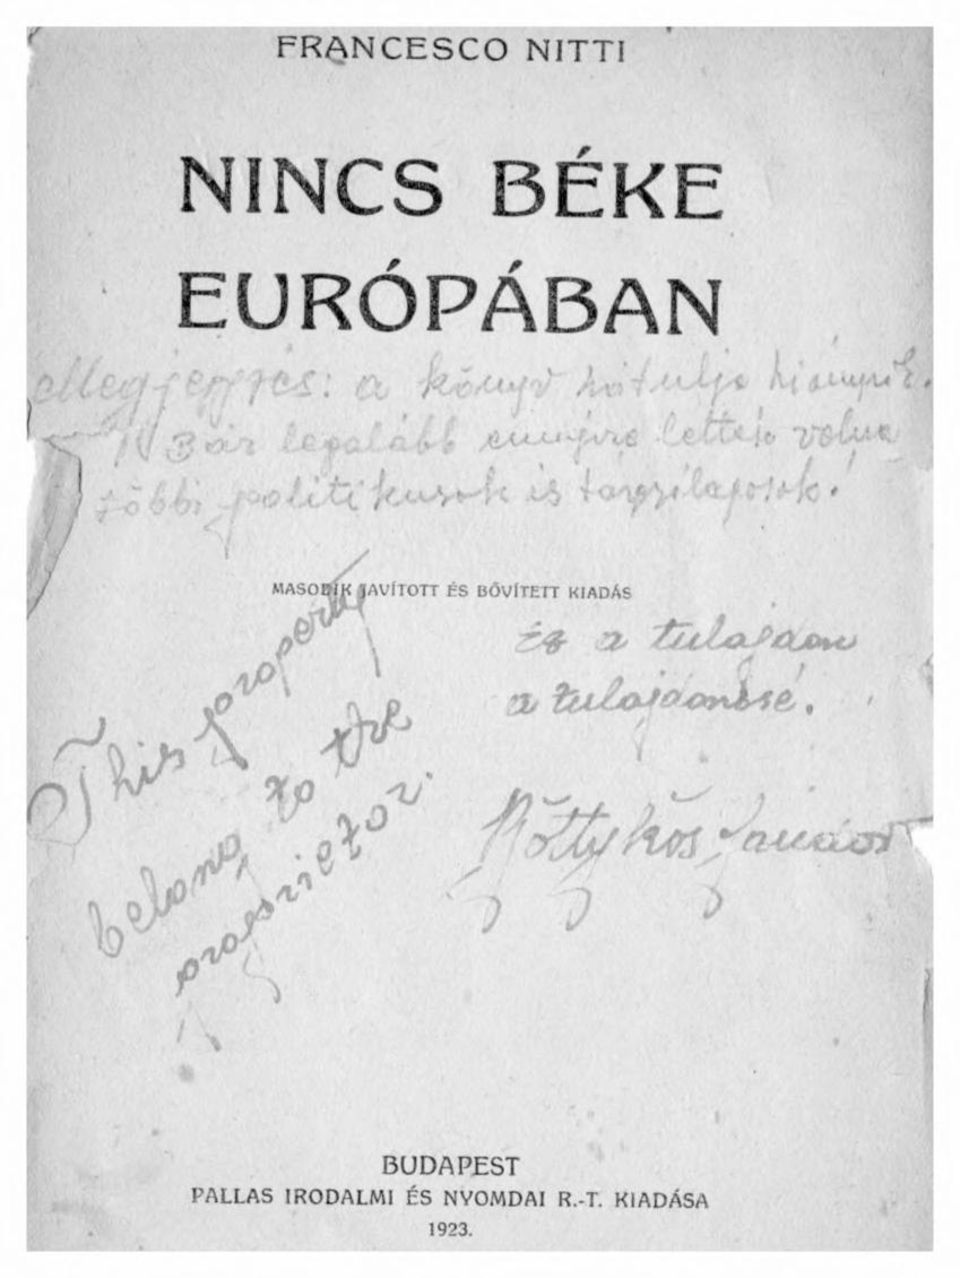 FRANCESCO NITTI
NINCS BÉKE
EURÓPÁBAN
Megjegyzés: a könyv hátulja hiányzik.
Bár legalább ennyire lettek volna
többi politikusok is tárgyilagosok!
MASODIK JAVÍTOTT ÉS BŐVÍTETT KIADÁS
Ez a tulajdon
a tulajdonosé.
This property
belong to the
proprietor.
Sándor
BUDAPEST
PALLAS IRODALMI ÉS NYOMDAI R.-T. KIADÁSA
1923.